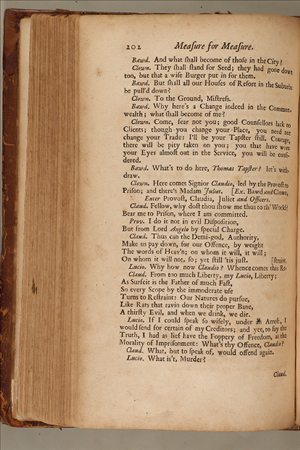 202 Measure for Measure.
Bawd. And what shall become of those in the City?
Clown. They shall stand for Seed; they had gone down
too, but that a wise Burger put in for them.
Bawd. But shall all our Houses of Resort in the Suburbs
be pull'd down?
Clown. To the Ground, Mistress.
Bawd. Why here's a Change indeed in the Common-
wealth; what shall become of me?
Clown. Come, fear not you; good Counsellors lack no
Clients; though you change your Place, you need not
change your Trade: I'll be your Tapster still. Courage,
there will be pity taken on you; you that have worn
your Eyes almost out in the Service, you will be consi-
dered.
Bawd. What's to do here, Thomas Tapster? let's with-
draw.
Clown. Here comes Signior Claudio, led by the Provost to
Prison; and there's Madam Juliet. [Ex. Bawd and Clown.
Enter Provost, Claudio, Juliet and Officers.
Claud. Fellow, why dost thou show me thus to th' World?
Bear me to Prison, where I am committed.
Prov. I do it not in evil Disposition,
But from Lord Angelo by special Charge.
Claud. Thus can the Demi-god, Authority,
Make us pay down, for our Offence, by weight
The words of Heav'n; on whom it will, it will;
On whom it will not, so; yet still 'tis just. [straint.
Lucio. Why how now Claudio? Whence comes this Re-
Claud. From too much Liberty, my Lucio, Liberty;
As Surfeit is the Father of much Fast,
So every Scope by the immoderate use
Turns to Restraint: Our Natures do pursue,
Like Rats that ravin down their proper Bane,
A thirsty Evil, and when we drink, we die.
Lucio. If I could speak so wisely, under an Arrest, I
would send for certain of my Creditors; and yet, to say the
Truth, I had as lief have the Foppery of Freedom, as the
Morality of Imprisonment: What's thy Offence, Claudio?
Claud. What, but to speak of, would offend again.
Lucio. What is't, Murder?
Claud.